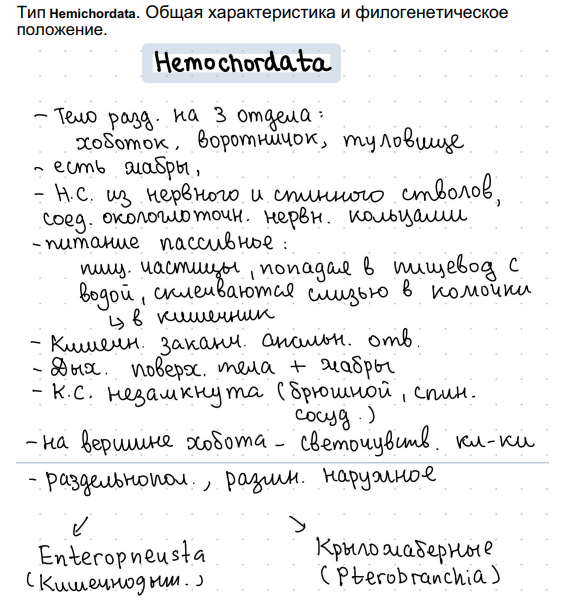 Тип Hemichordata. Общая характеристика и филогенетическое
положение.
Hemochordata
- Тело разд. на 3 отдела:
хоботок, воротничок, туловище
- есть жабры,
- Н.С. из нервного и спинного стволов,
соед. окологлоточн. нервн. кольцами
- питание пассивное:
пищ. частицы, попадая в пищевод с
водой, склеиваются слизью в комочки
↳ в кишечник
- Кишечн. заканч. анальн. отв.
- Дых. поверх. тела + жабры
- К.С. незамкнута (брюшной, спин.
сосуд.)
- на вершине хобота - светочувств. кл-ки
- раздельнопол., разин. наружное
↙ ↘
Enteropneusta Крыложаберные
(Кишечнодыш.) (Pterobranchia)